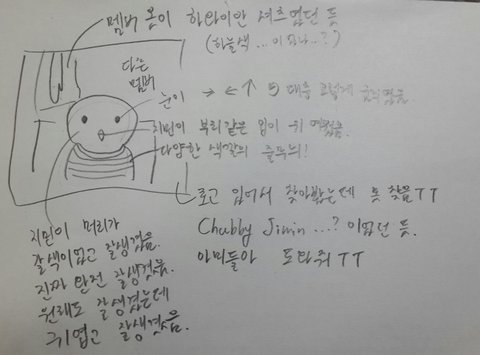 멤버 몸이 하와이안 셔츠였던 듯
(하늘색 ... 이었나..?)
다른
멤버
눈이 → ← ↑ 5 대충 그렇게 움직였음
지민이 부리같은 입이 귀여웠음
다양한 색깔의 줄무늬!
로고 있어서 찾아봤는데 못 찾음 ㅠㅠ
Chubby Jimin ...? 이었던 듯.
아미들아 도와줘 ㅠㅠ
지민이 머리가
갈색이었고 잘생겼음.
진짜 완전 잘생겼음.
원래도 잘생겼는데
귀엽고 잘생겼음.